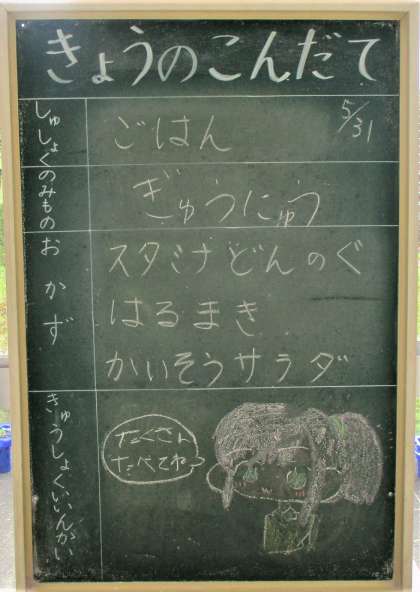 きょうのこんだて
5/31
しゅしょく
ごはん
のみもの
ぎゅうにゅう
おかず
スタミナどんのぐ
はるまき
かいそうサラダ
きゅうしょくいいんかい
たくさん
たべてね